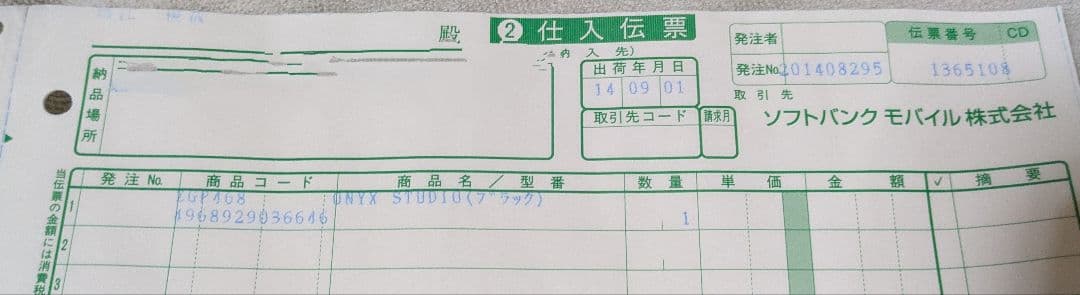 殿
② 仕入伝票
(納入先)
発注者
伝票番号 CD
発注No. 201408295
1365108
出荷年月日
14 09 01
取引先
ソフトバンク モバイル 株式会社
取引先コード 請求月
納品場所
発注No. 商品コード 商品名/型番 数量 単価 金額 ✓ 摘要
1 EGP468 ONYX STUDIO(ブラック)
4968929036646 1
2
3
当伝票の金額には消費税